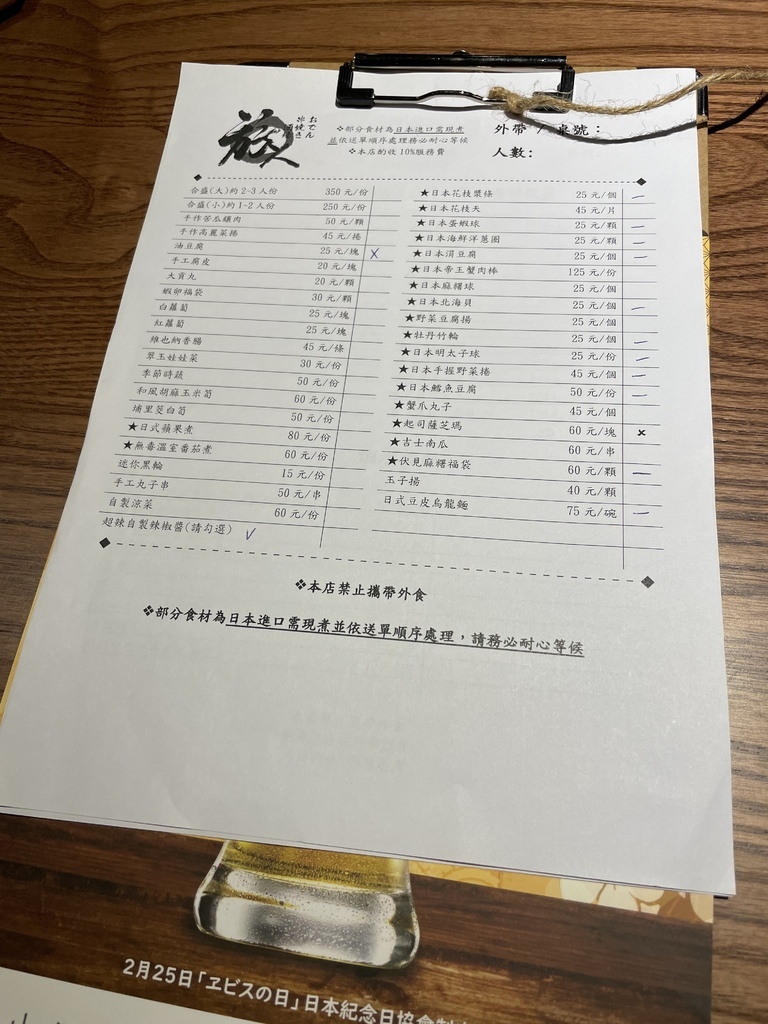 族
おでん
串焼き
❖部分食材為日本進口需現煮
並依送單順序處理務必耐心等候
❖本店酌收10%服務費
外帶 / 桌號:
人數:
合盛(大)約2-3人份 350元/份
合盛(小)約1-2人份 250元/份
手作苦瓜鑲肉 50元/顆
手作高麗菜捲 45元/捲
油豆腐 25元/塊 X
手工腐皮 20元/塊
大貢丸 20元/顆
蝦卵福袋 30元/顆
白蘿蔔 25元/塊
紅蘿蔔 25元/塊
維也納香腸 45元/條
翠玉娃娃菜 30元/份
季節時蔬 50元/份
和風胡麻玉米筍 60元/份
埔里茭白筍 50元/份
★日式蘋果煮 80元/份
★無毒溫室番茄煮 60元/份
迷你黑輪 15元/份
手工丸子串 50元/串
自製涼菜 60元/份
超辣自製辣椒醬(請勾選) ✓
★日本花枝漿條 25元/個 —
★日本花枝天 45元/片
★日本蛋蝦球 25元/顆 —
★日本海鮮洋蔥圈 25元/顆 —
★日本涓豆腐 25元/個 —
★日本帝王蟹肉棒 125元/份
★日本麻糬球 25元/個
★日本北海貝 25元/個 —
★野菜豆腐揚 25元/個
★牡丹竹輪 25元/個 —
★日本明太子球 25元/份 —
★日本手握野菜捲 45元/個 —
★日本鱈魚豆腐 50元/份 —
★蟹爪丸子 45元/個
★起司薩芝瑪 60元/塊 x
★吉士南瓜 60元/串
★伏見麻糬福袋 60元/顆 —
玉子揚 40元/顆
日式豆皮烏龍麵 75元/碗 —
❖本店禁止攜帶外食
❖部分食材為日本進口需現煮並依送單順序處理，請務必耐心等候
2月25日「ヱビスの日」日本紀念日協會制